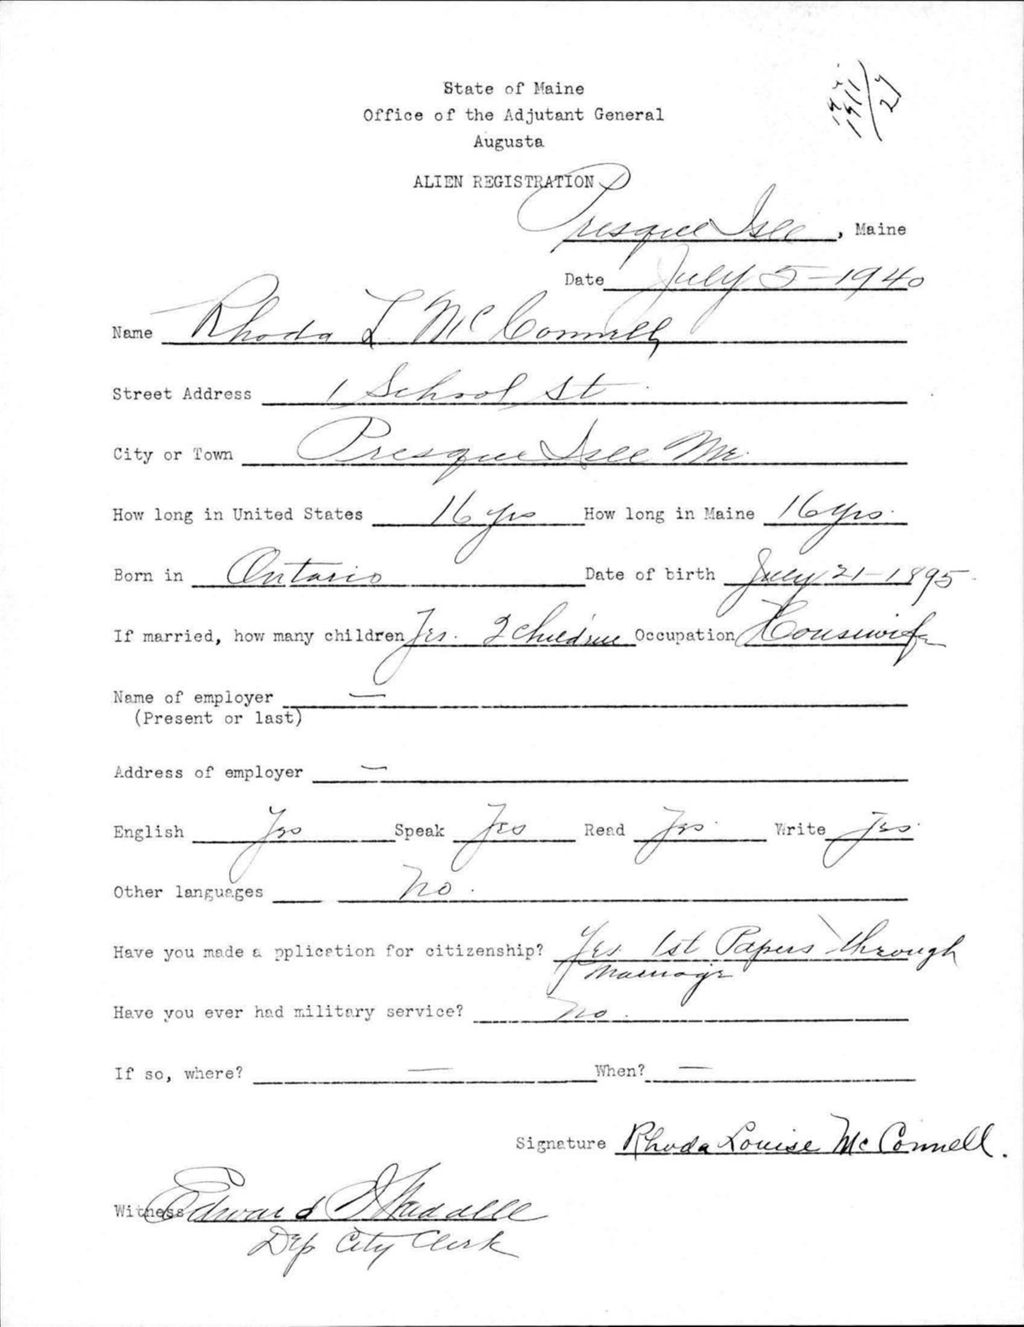 State of Maine
Office of the Adjutant General
Augusta
ALIEN REGISTRATION
Presque Isle, Maine
Date July 5-1940
Name Rhoda L McConnell
Street Address 1 School St
City or Town Presque Isle Me.
How long in United States 16 yrs How long in Maine 16 yrs.
Born in Ontario Date of birth July 21-1895
If married, how many children Yes. 2 children Occupation Housewife
Name of employer —
(Present or last)
Address of employer —
English Yes Speak Yes Read Yes. Write Yes.
Other languages No.
Have you made a pplication for citizenship? Yes 1st Papers through
marriage
Have you ever had military service? No.
If so, where? — When? —
Signature Rhoda Louise McConnell.
Witness Edward
Dep City Clerk